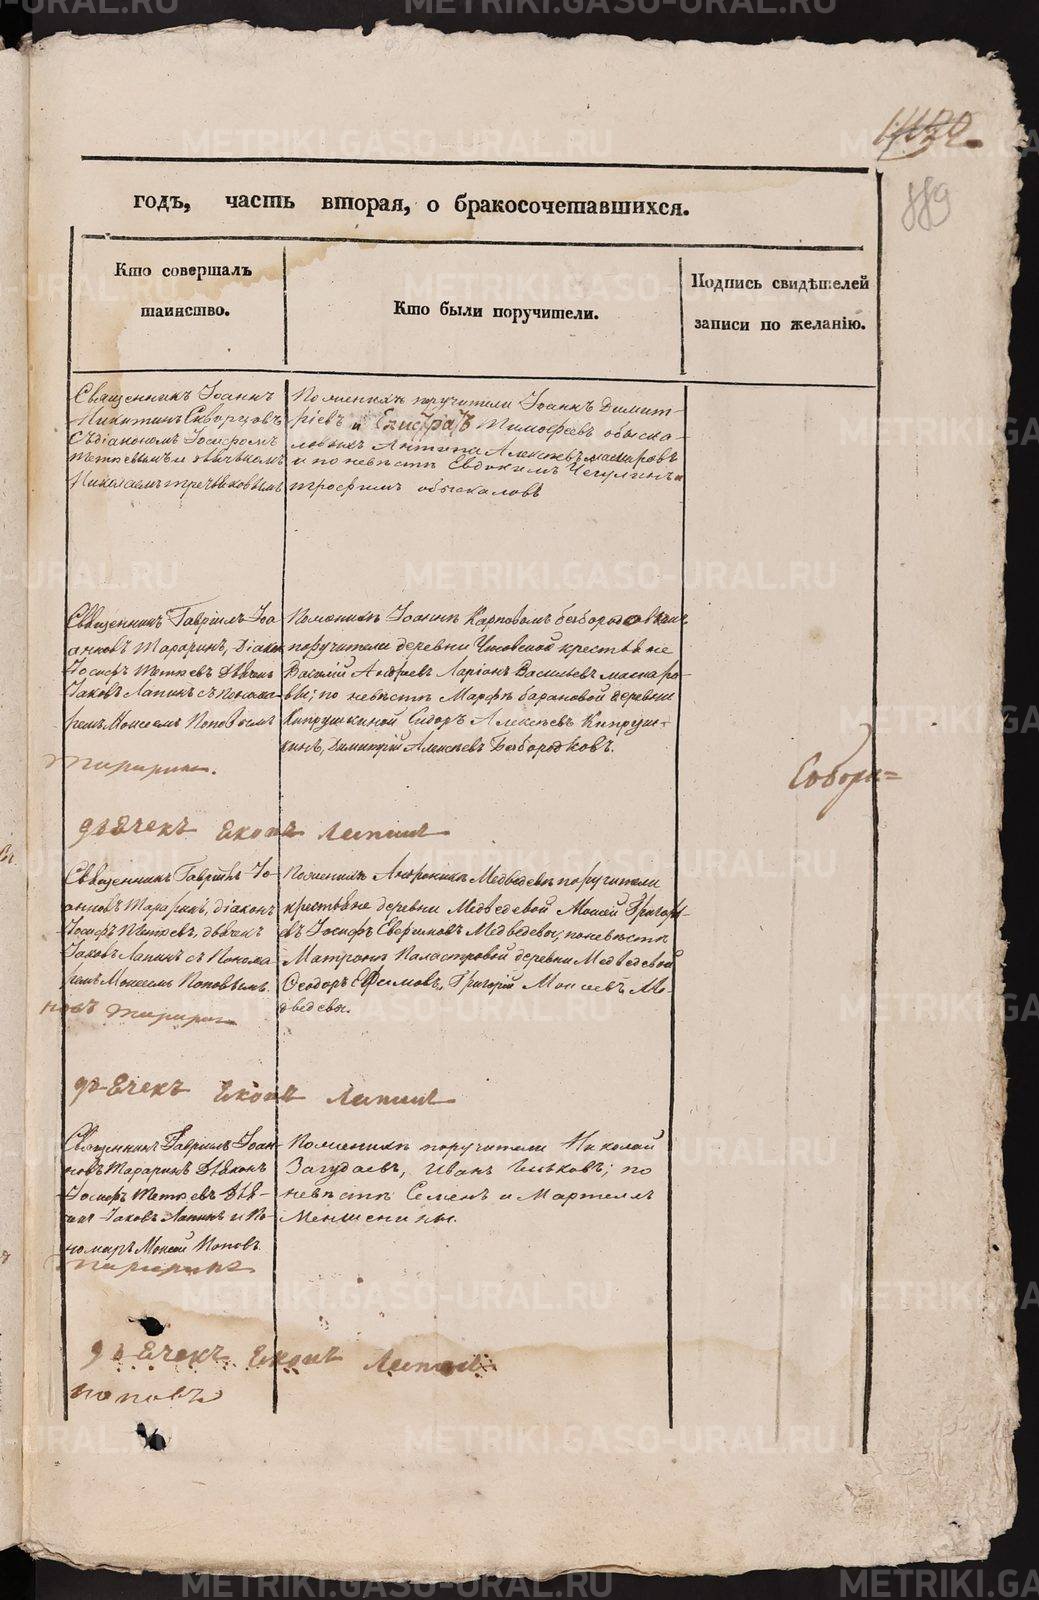 годъ, часть вторая, о бракосочетавшихся.
119
Кто совершалъ
таинство.
Кто были поручители.
Подпись свидѣтелей
записи по желанію.
Священникъ Іоаннъ
Никитинъ Скворцовъ
съ діакономъ Іосифомъ
Теткевымъ и дьячькомъ
Николаемъ
По женихѣ поручители Іоаннъ Димит-
ріевъ и Тимофеевъ обыска-
ловыхъ Антипа Алексѣевъ
и по невѣстѣ Евдокимъ
трофимъ обыскаловъ
Священникъ Гавріилъ Іоа-
нновъ Тараринъ, Діаконъ
Іосифъ Теткевъ Дьячекъ
Іаковъ Лапинъ съ Понома-
ремъ Моисеемъ Поповымъ
Тараринъ.
По женихѣ Іоаннѣ Карповомъ Безбородовымъ
поручители деревни крестьяне
Василій Андреевъ Ларіонъ Васильевъ
вы; по невѣстѣ Марфѣ барановой деревни
Кипрушкиной Сидоръ Алексѣевъ Кипруш-
кинъ, Димитрій Алексѣевъ Безбородковъ.
Собори=
дьечекъ Екопъ Лапинъ
Священникъ Гавріилъ Іо-
анновъ Тараринъ, діаконъ
Іосифъ Теткевъ, дьячекъ
Іаковъ Лапинъ съ Понома-
ремъ Моисеемъ Поповымъ.
повъ Тараринъ
По женихѣ Андроникѣ Медведевѣ поручители
крестьяне деревни Медведевой Моисей Григорі-
евъ Іосифъ Евфимовъ Медведевы; по невѣстѣ
Матронѣ деревни Медведевой
Ѳеодоръ Ефимовъ, Григорій Моисеевъ Ме-
дведевы.
дьечекъ Екопъ Лапинъ
Священникъ Гавріилъ Іоан-
новъ Тараринъ Діаконъ
Іосифъ Теткевъ Дья-
чекъ Іаковъ Лапинъ и По-
номарь Моисей Поповъ
Тараринъ
По женихѣ поручители Николай
Загудаевъ, Иванъ Ильковъ; по
невѣстѣ Семенъ и
Меншенины.
дьечекъ Екопъ Лапинъ
Поповъ
METRIKI.GASO-URAL.RU